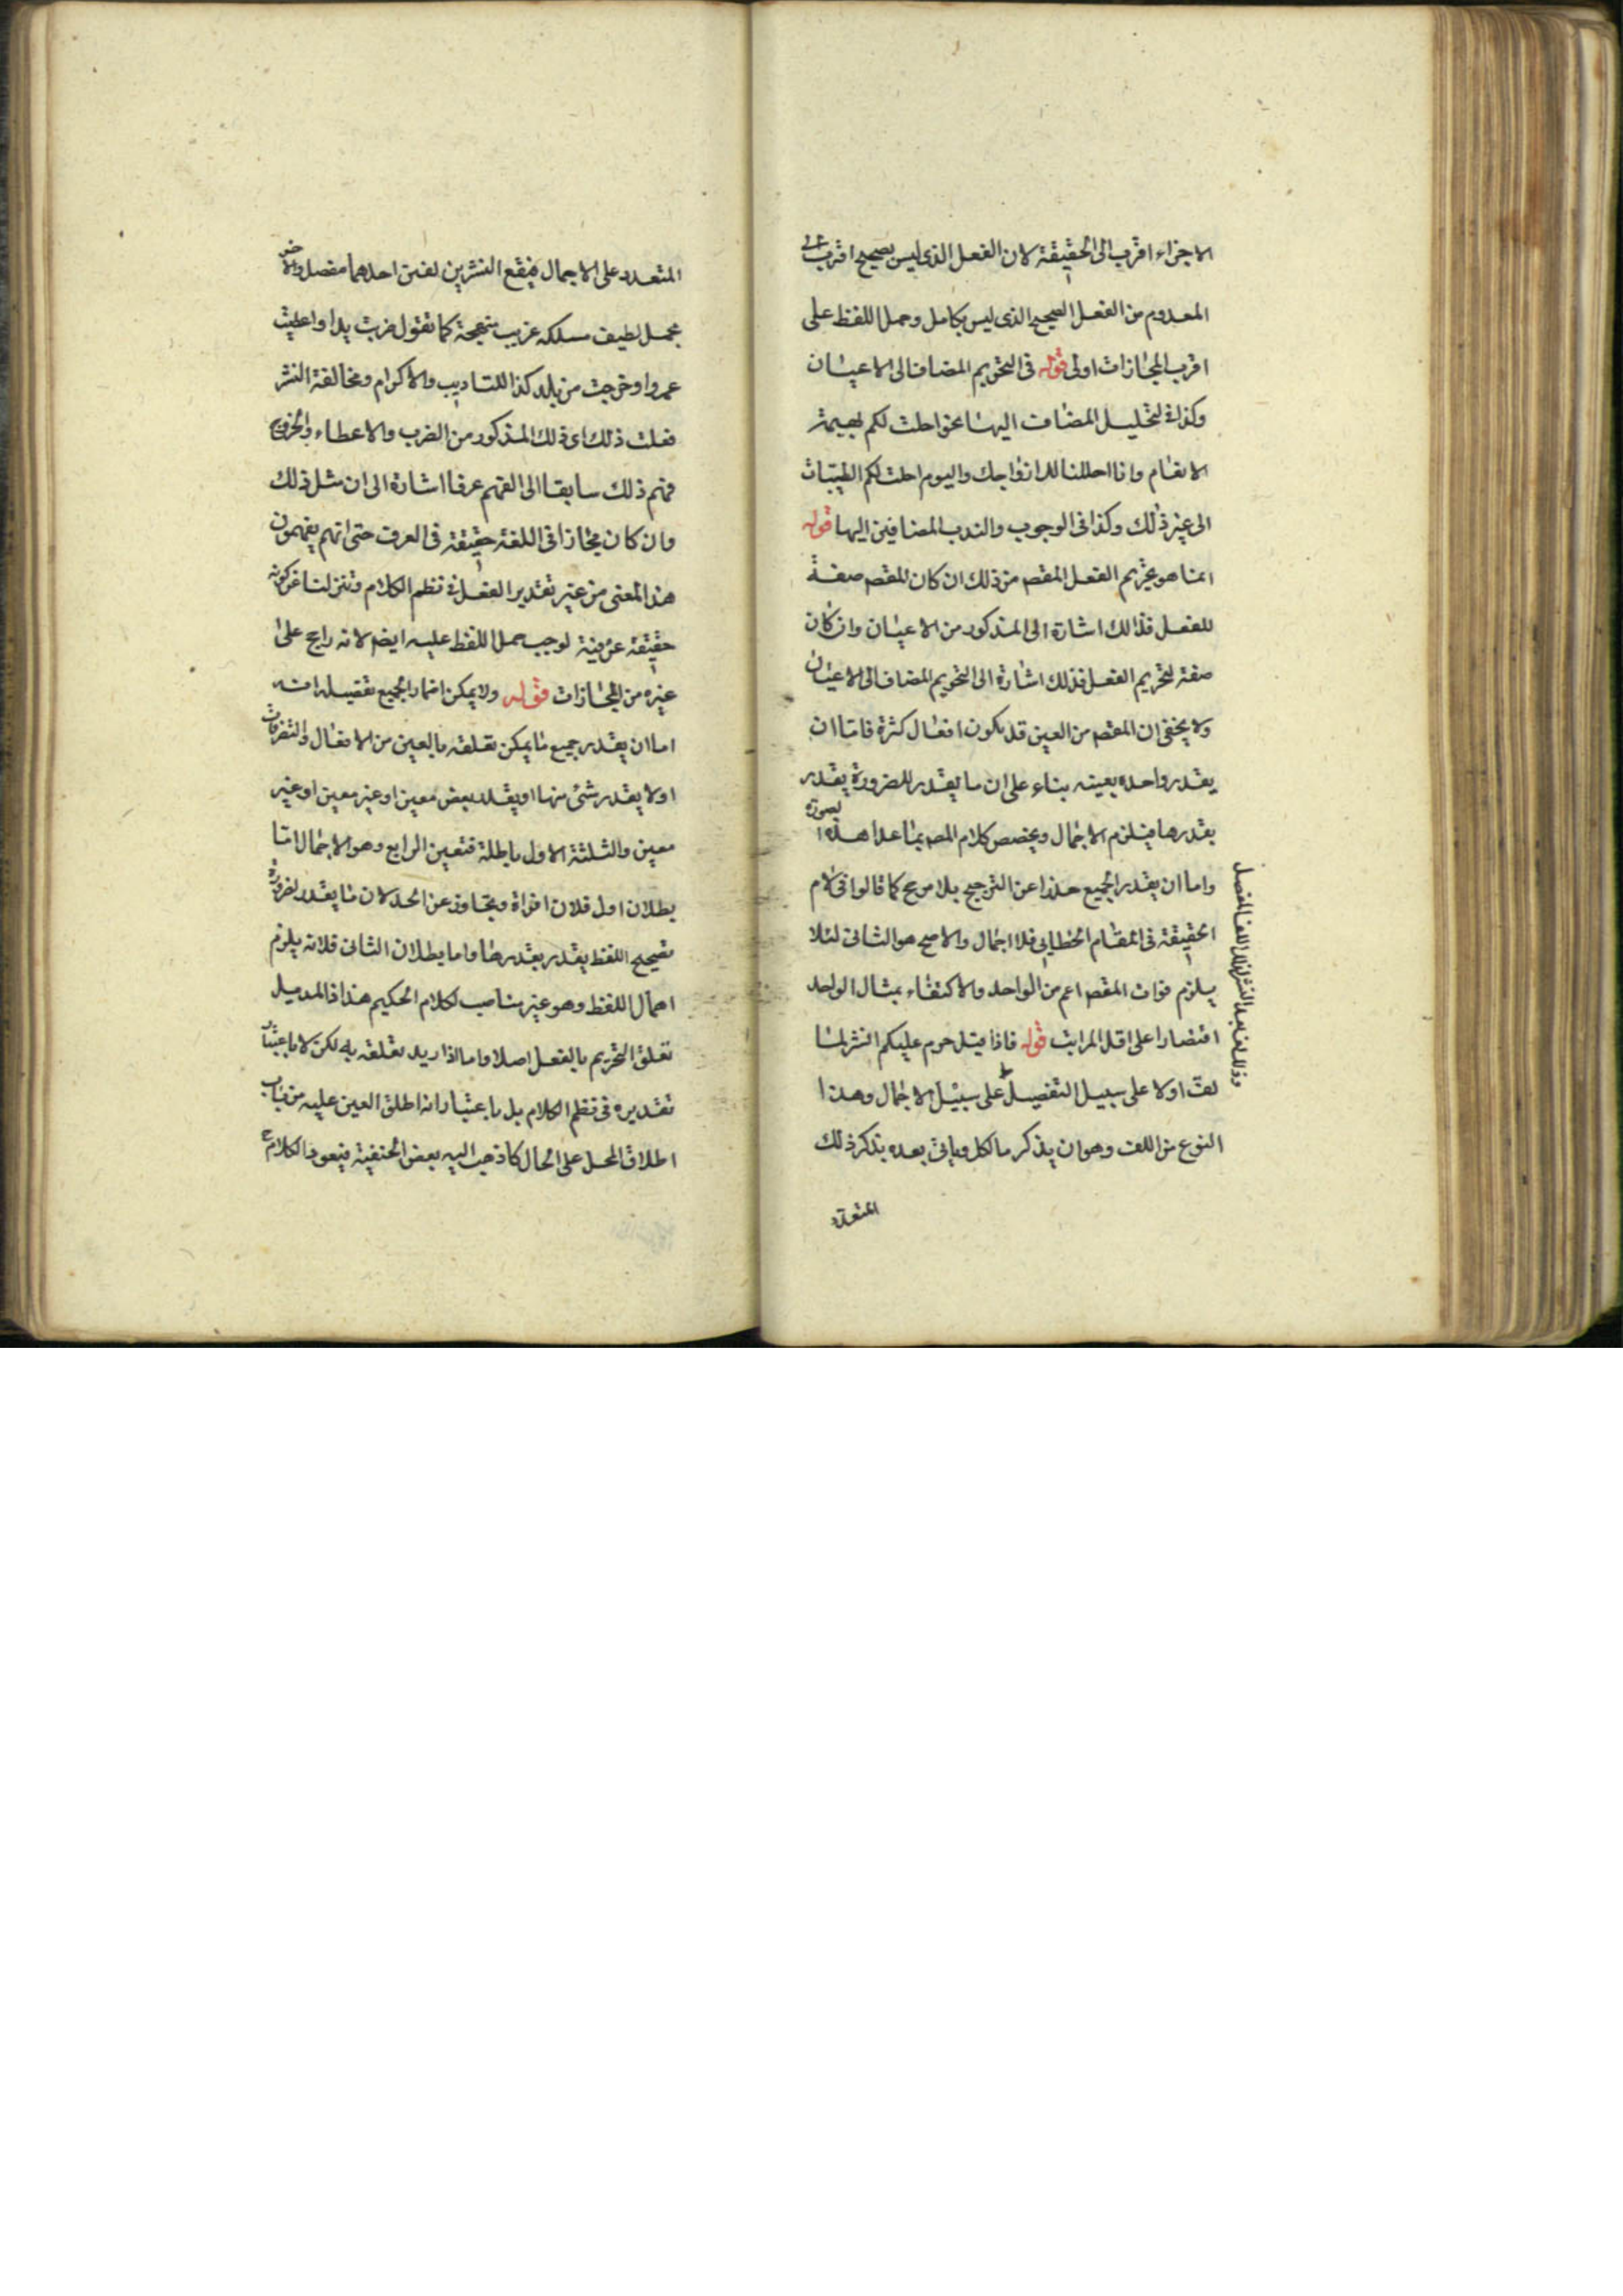 الاجزاء اقرب الى الحقيقة لان الفعل الذى ليس بصحيح اقرب الى
المعدوم من الفعل الصحيح الذى ليس بكامل وحمل اللفظ على
اقرب المجازات اولى قوله فى التحريم المضاف الى الاعيان
وكذا فى التحليل المضاف اليها نحو احلت لكم بهيمة
الانعام وانا احللنا لك ازواجك واليوم احلت لكم الطيبات
الى غير ذلك وكذا فى الوجوب والندب المضافين اليها قوله
انما هو تحريم الفعل المقصـ من ذلك ان كان المقصـ صفة
للفعل فذالك اشارة الى المذكور من الاعيان وان كان
صفة لتحريم الفعل فذلك اشارة الى التحريم المضاف الى الاعيان
ولا يخفى ان المقصـ من العين قد يكون افعال كثرة فاما ان
يقدر واحده بعينه بناء على ان ما يقدر للضرورة يقدر
بقدرها فيلزم الاجمال ويخصص كلام المصـ بما عدا هذه الصورة
واما ان يقدر الجميع حذرا عن الترجيح بلا مرجح كما قالوا فى لام
الحقيقة فى المقام الخطابى فلا اجمال والاصح هو الثانى لئلا
يلزم فوات المقصـ اعم من الواحد والاكتفاء بمثال الواحد
اقتصارا على اقل المراتب قوله فاذا قيل حرم عليكم النشر لما
لفّ اولا على سبيل التفصيل على سبيل الاجمال وهذا
النوع من اللف وهو ان يذكر ما لكل ويأتى بعده بذكر ذلك
المتعدد
المتعدد على الاجمال فيقع النشر بين لفين احدهما مفصل والاخر
مجمل لطيف مسلكه غريب منهجة كما تقول ضربت يدا واعطيت
عمروا وخرجت من بلد كذا للتاديب والاكرام ومخالفة النشر
فعلت ذلك اى ذلك المذكور من الضرب والاعطاء والخروج
فهم ذلك سابقا الى الفهم عرفا اشارة الى ان مثل ذلك
وان كان مجازا فى اللغة حقيقة فى العرف حتى انهم يفهمون
هذا المعنى من غير تقدير الفعل فى نظم الكلام وتنزلنا عن كونه
حقيقة عرفية لوجب حمل اللفظ عليه ايضـ لانه راجح على
غيره من المجازات قوله ولا يمكن اضمار الجميع تفصيله انه
اما ان يقدر جميع ما يمكن تعلقه بالعين من الافعال والتصرفات
اولا يقدر شئ منها او يقدر بعض معين او غير معين او غير
معين والثلثة الاول باطلة فتعين الرابع وهو الاجمال اما
بطلان اول فلان افراة وتجاوز عن الحد لان ما يقدر لضرورة
تصحيح اللفظ يقدر بقدرها واما بطلان الثانى فلانه يلزم
اهمال اللفظ وهو غير مناصب لكلام الحكيم هذا اذا لم يميل
تعلق التحريم بالفعل اصلا واما اذا اريد تعلقه به لكن لا باعتبار
تقديره فى نظم الكلام بل باعتبار انه اطلق العين عليه من قباب
اطلاق المحل على الحال كما ذهب اليه بعض الحنفية فيعود الكلام